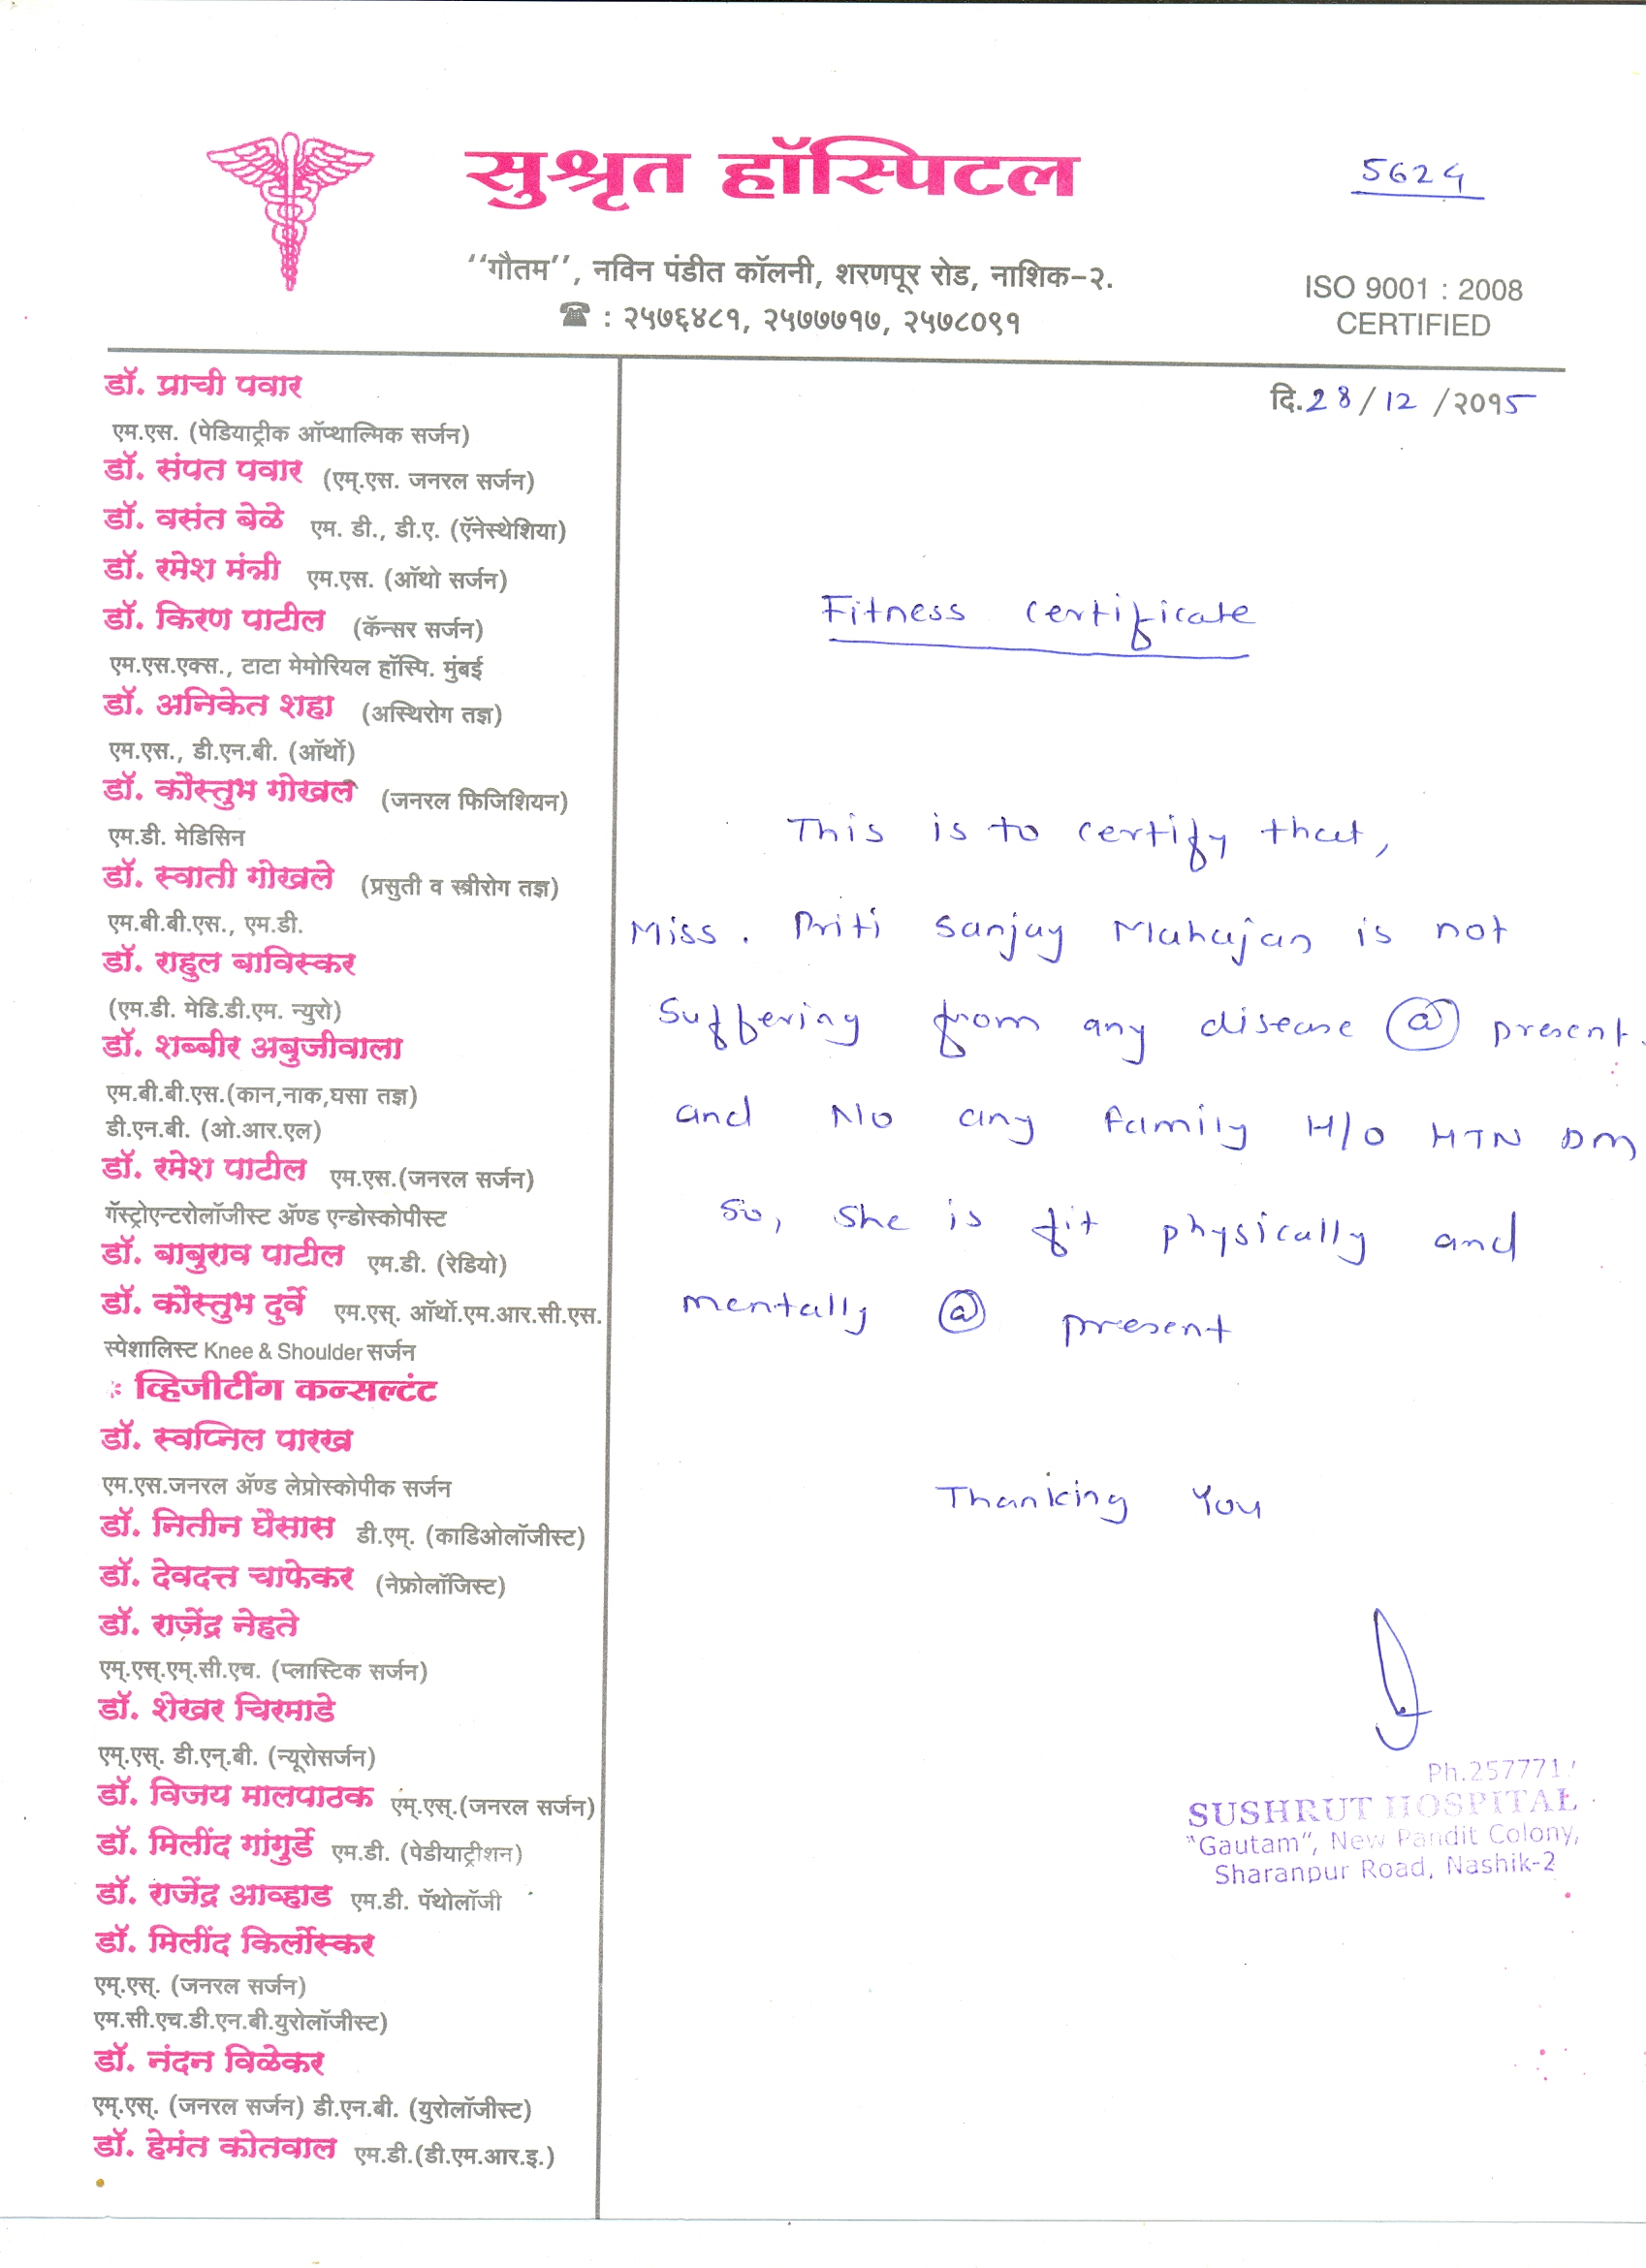 सुश्रृत हॉस्पिटल
5624
“गौतम”, नविन पंडीत कॉलनी, शरणपूर रोड, नाशिक-२.
: २५७६४८१, २५७७७१७, २५७८०९१
ISO 9001 : 2008
CERTIFIED
दि.28/12/२०१5
डॉ. प्राची पवार
एम.एस. (पेडियाट्रीक ऑप्थाल्मिक सर्जन)
डॉ. संपत पवार (एम्.एस. जनरल सर्जन)
डॉ. वसंत बेळे एम. डी., डी.ए. (ऍनेस्थेशिया)
डॉ. रमेश मंत्री एम.एस. (ऑथो सर्जन)
डॉ. किरण पाटील (कॅन्सर सर्जन)
एम.एस.एक्स., टाटा मेमोरियल हॉस्पि. मुंबई
डॉ. अनिकेत शहा (अस्थिरोग तज्ञ)
एम.एस., डी.एन.बी. (ऑर्थो)
डॉ. कौस्तुभ गोखले (जनरल फिजिशियन)
एम.डी. मेडिसिन
डॉ. स्वाती गोखले (प्रसुती व स्त्रीरोग तज्ञ)
एम.बी.बी.एस., एम.डी.
डॉ. राहुल बाविस्कर
(एम.डी. मेडि.डी.एम. न्युरो)
डॉ. शब्बीर अबुजीवाला
एम.बी.बी.एस.(कान,नाक,घसा तज्ञ)
डी.एन.बी. (ओ.आर.एल)
डॉ. रमेश पाटील एम.एस.(जनरल सर्जन)
गॅस्ट्रोएन्टरोलॉजीस्ट ॲण्ड एन्डोस्कोपीस्ट
डॉ. बाबुराव पाटील एम.डी. (रेडियो)
डॉ. कौस्तुभ दुर्वे एम.एस्. ऑर्थो.एम.आर.सी.एस.
स्पेशालिस्ट Knee & Shoulder सर्जन
व्हिजीटींग कन्सल्टंट
डॉ. स्वप्निल पारख
एम.एस.जनरल ॲण्ड लेप्रोस्कोपीक सर्जन
डॉ. नितीन घैसास डी.एम्. (काडिओलॉजीस्ट)
डॉ. देवदत्त चाफेकर (नेफ्रोलॉजिस्ट)
डॉ. राजेंद्र नेहते
एम्.एस्.एम्.सी.एच. (प्लास्टिक सर्जन)
डॉ. शेखर चिरमाडे
एम्.एस्. डी.एन्.बी. (न्यूरोसर्जन)
डॉ. विजय मालपाठक एम्.एस्.(जनरल सर्जन)
डॉ. मिलींद गांगुर्डे एम.डी. (पेडीयाट्रीशन)
डॉ. राजेंद्र आव्हाड एम.डी. पॅथोलॉजी
डॉ. मिलींद किर्लोस्कर
एम्.एस्. (जनरल सर्जन)
एम.सी.एच.डी.एन.बी.युरोलॉजीस्ट)
डॉ. नंदन विळेकर
एम्.एस्. (जनरल सर्जन) डी.एन.बी. (युरोलॉजीस्ट)
डॉ. हेमंत कोतवाल एम.डी.(डी.एम.आर.इ.)
Fitness certificate
This is to certify that,
Miss. Priti Sanjay Mahajan is not
Suffering from any disease @ present.
and No any family H/O HTN DM
So, She is fit physically and
mentally @ present
Thanking You
Ph.257771
SUSHRUT HOSPITAL
"Gautam", New Pandit Colony,
Sharanpur Road, Nashik-2